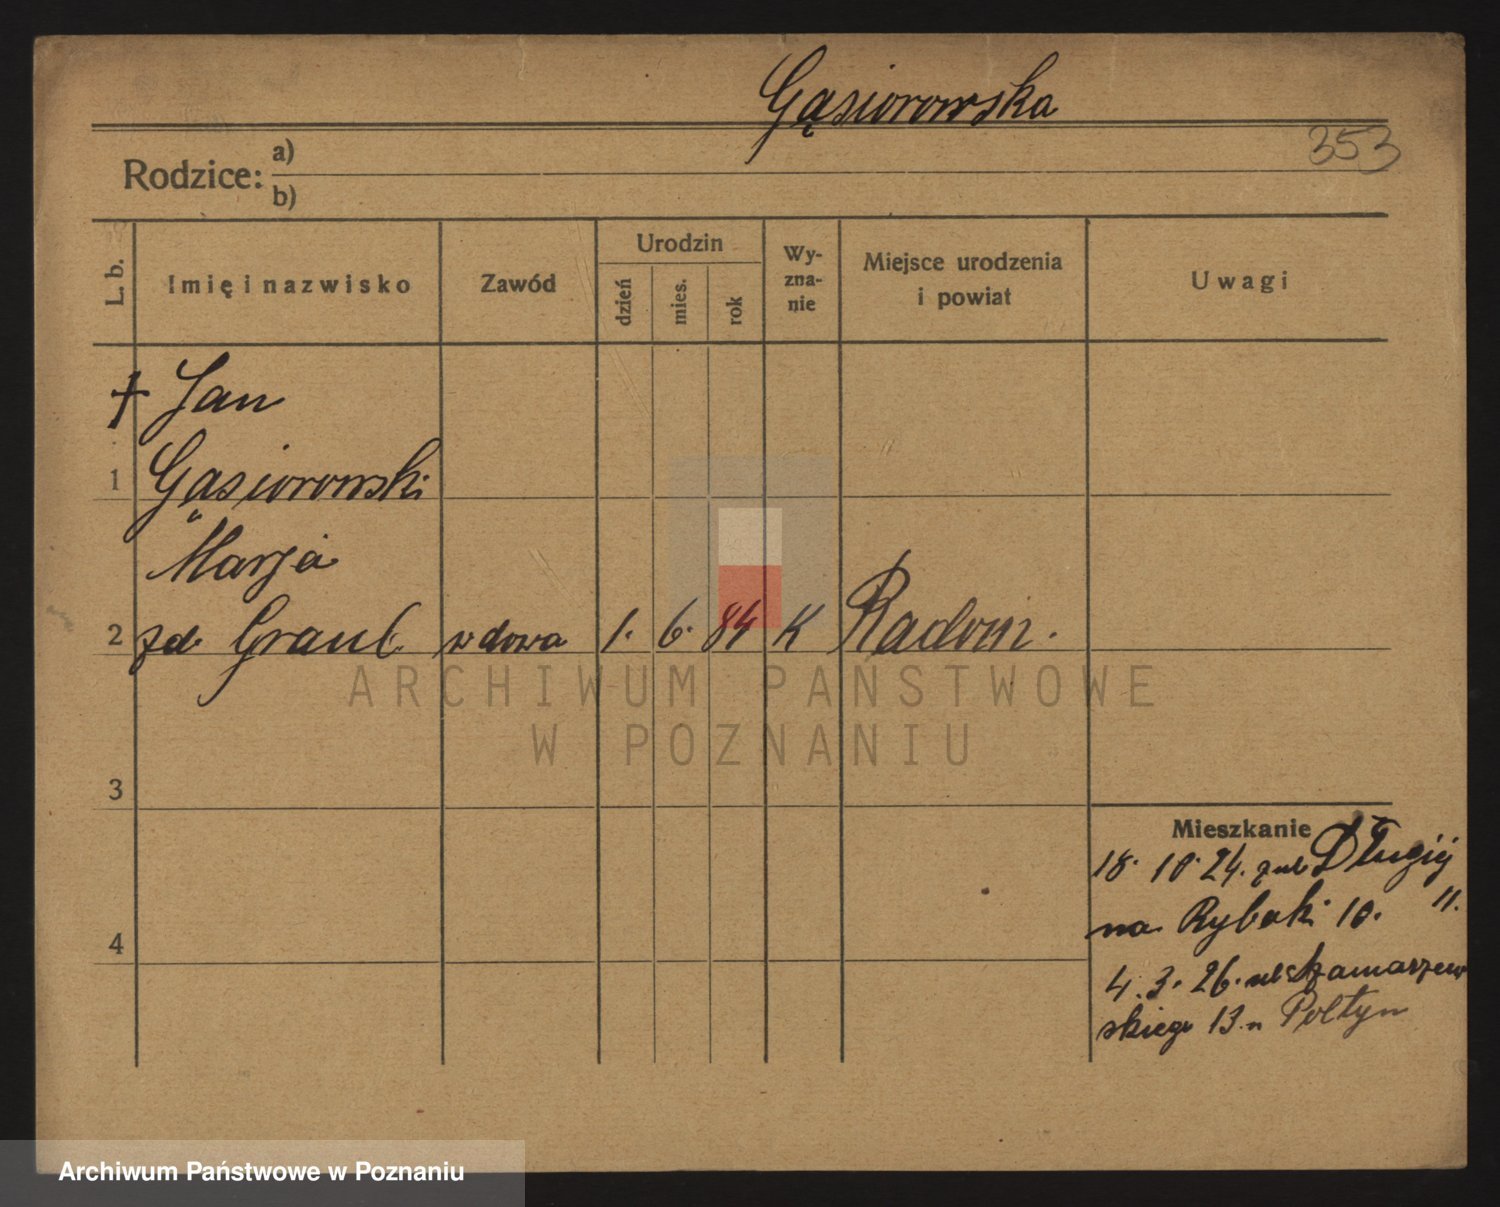 Gąsiorowska
353
Rodzice: a)
b)
L. b.
Imię i nazwisko
Zawód
Urodzin
dzień
mies.
rok
Wy-
zna-
nie
Miejsce urodzenia
i powiat
Uwagi
† Jan
1 Gąsiorowski
Marja
2 zd. Graul wdowa 1. 6. 84 K Radom.
3
4
Mieszkanie
18. 10. 24. Długiej 11.
na Rybaki 10.
4. 3. 26. ul. Szamarzew
skiego 13. Poltyn
ARCHIWUM PAŃSTWOWE
W POZNANIU
Archiwum Państwowe w Poznaniu